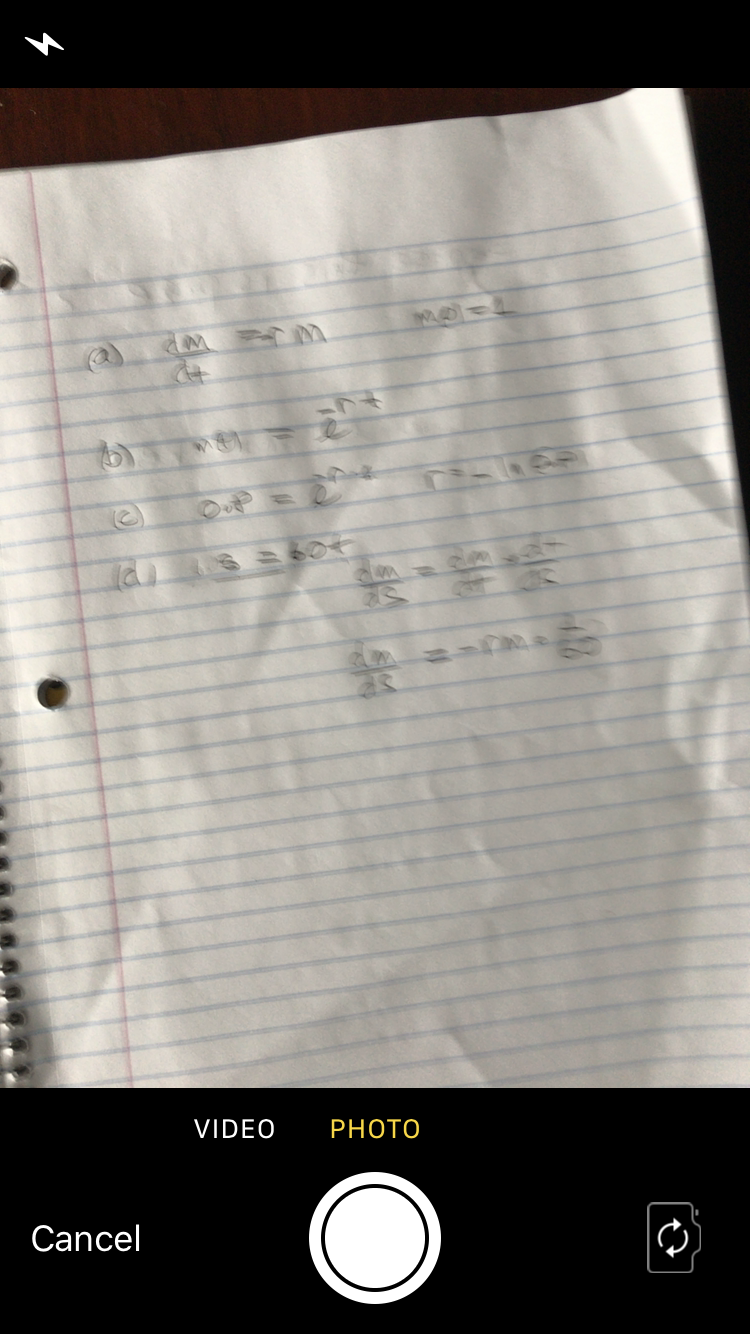 (a) dm/dt = -rm m(0) = 1
(b) m(t) = e^-rt
(c) 0.8 = e^-r·t r = - ln
(d) s = 60t dm/ds = dm/dt · dt/ds
dm/ds = -rm ·
VIDEO PHOTO
Cancel